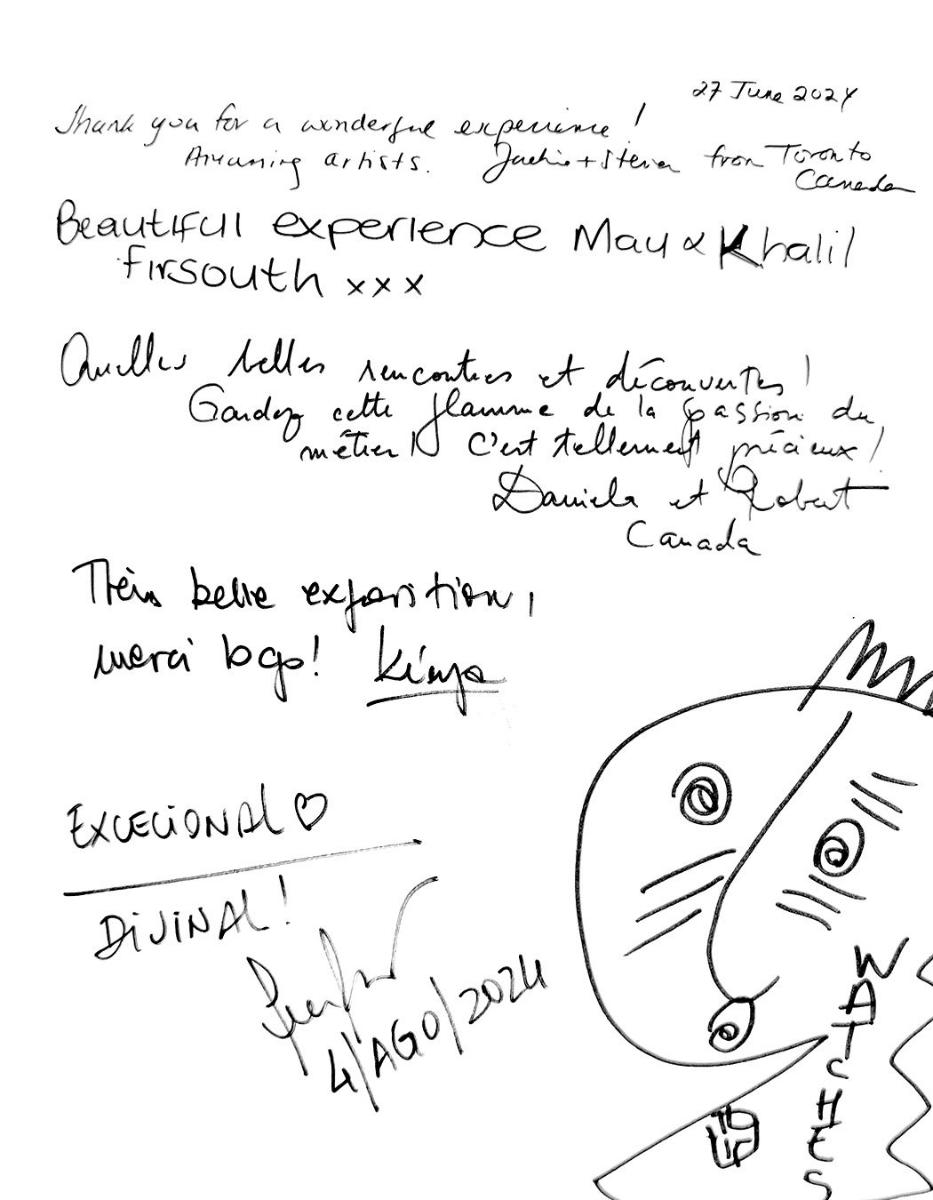 27 June 2024
Thank you for a wonderful experience!
Amazing artists. Jackie + Steven from Toronto
Canada
Beautiful experience May & Khalil
firsouth xxx
Quelles belles rencontres et découvertes!
Gardez cette flamme de la passion du
métier! C'est tellement précieux!
Daniela et Robert
Canada
Très belle exposition,
merci bcp! Kenya
EXCECIONAL ♡
DIVINAL!
4/AGO/2024
WATCHES